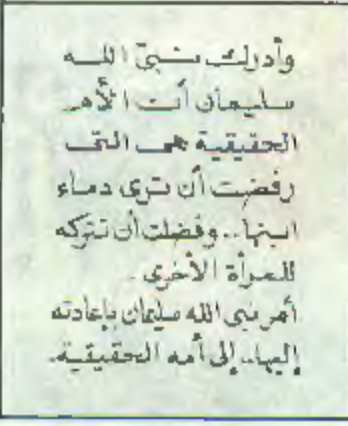 وأدرك نبيّ الله
سليمان أن الأم
الحقيقية هى التى
رفضت أن ترى دماء
ابنها.. وفضلت أن تتركه
للمرأة الأخرى.
أمر نبى الله سليمان بإعادته
إليها.. إلى أمه الحقيقية.